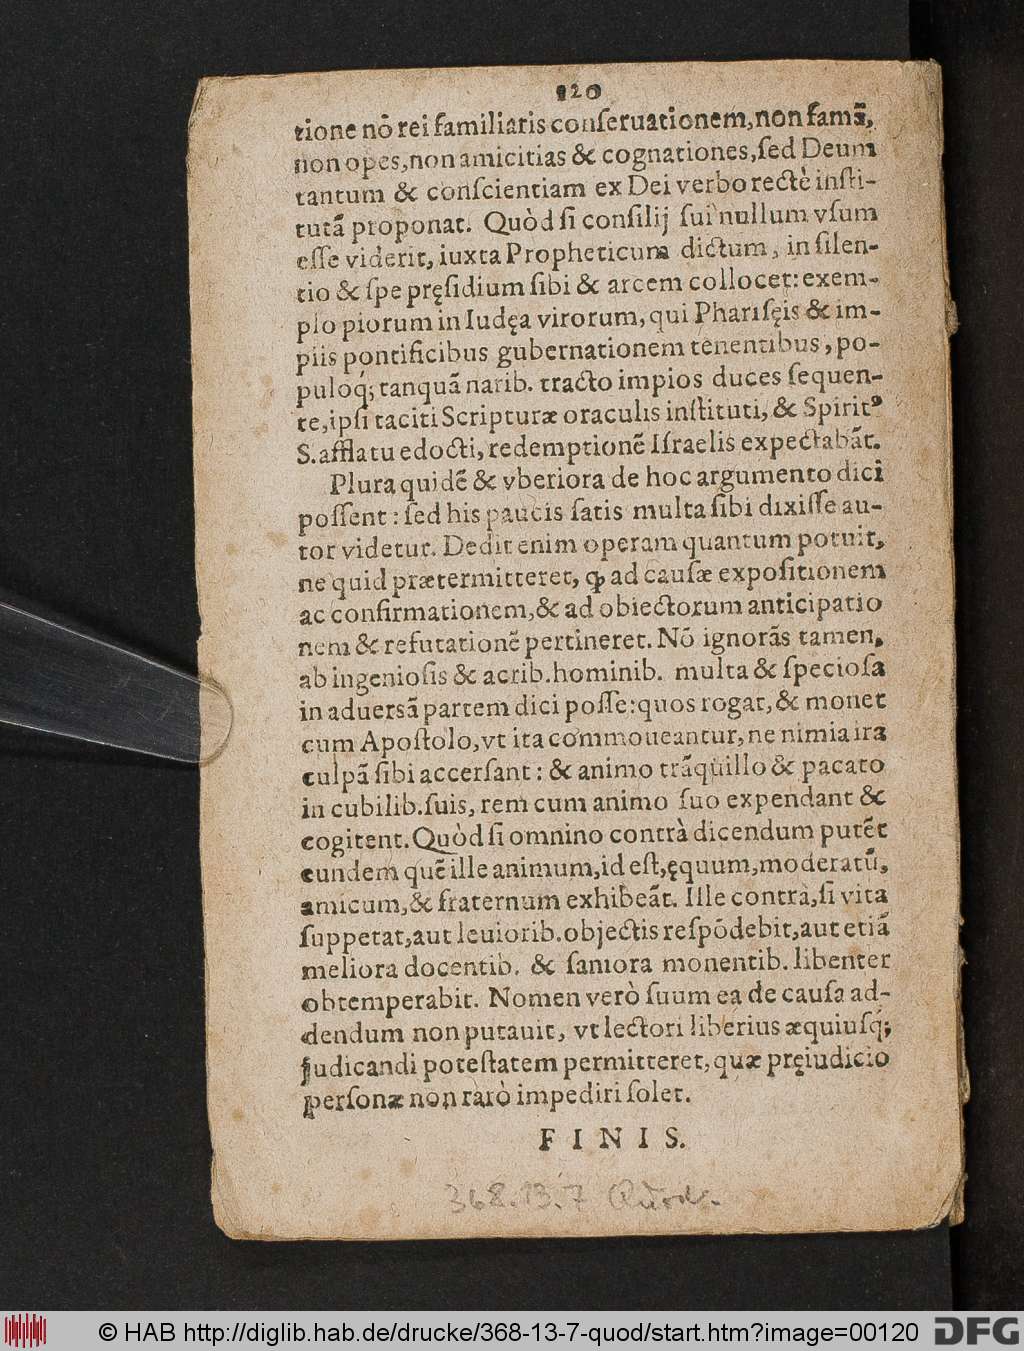 120
tione nō rei familiaris conſeruationem, non famā,
non opes, non amicitias & cognationes, ſed Deum
tantum & conſcientiam ex Dei verbo rectè inſti-
tutā proponat. Quòd ſi conſilij ſui nullum vſum
eſſe viderit, iuxta Propheticum dictum, in ſilen-
tio & ſpe pręſidium ſibi & arcem collocet: exem-
plo piorum in Iudęa virorum, qui Phariſęis & im-
piis pontificibus gubernationem tenentibus, po-
puloq́; tanquā narib. tracto impios duces ſequen-
te, ipſi taciti Scripturæ oraculis inſtituti, & Spiritꝰ
S. afflatu edocti, redemptionē Iſraelis expectabāt.
Plura quidē & vberiora de hoc argumento dici
poſſent: ſed his paucis ſatis multa ſibi dixiſſe au-
tor videtur. Dedit enim operam quantum potuit,
ne quid prætermitteret, ꝙ ad cauſæ expoſitionem
ac confirmationem, & ad obiectorum anticipatio
nem & refutationē pertineret. Nō ignorās tamen,
ab ingenioſis & acrib. hominib. multa & ſpecioſa
in aduersā partem dici poſſe: quos rogat, & monet
cum Apoſtolo, vt ita commoueantur, ne nimia ira
culpā ſibi accerſant: & animo trāquillo & pacato
in cubilib. ſuis, rem cum animo ſuo expendant &
cogitent. Quòd ſi omnino contrà dicendum putēt
eundem quē ille animum, id eſt, ęquum, moderatū,
amicum, & fraternum exhibeāt. Ille contrà, ſi vita
ſuppetat, aut leuiorib. objectis reſpōdebit, aut etiā
meliora docentib. & ſaniora monentib. libenter
obtemperabit. Nomen verò ſuum ea de cauſa ad-
dendum non putauit, vt lectori liberius æquiuſq́;
judicandi poteſtatem permitteret, quæ pręiudicio
perſonæ non rarò impediri ſolet.
FINIS.
368.13.7 Quod.
© HAB http://diglib.hab.de/drucke/368-13-7-quod/start.htm?image=00120
DFG